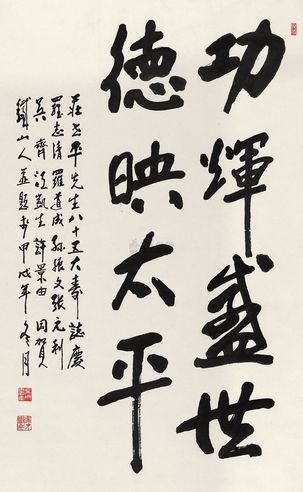 功輝盛世
德映太平
莊世平先生八十五大壽誌慶
羅志清羅道成孫振文張元利
吳齊凱生許景由同賀
山人並題甲戌年冬月